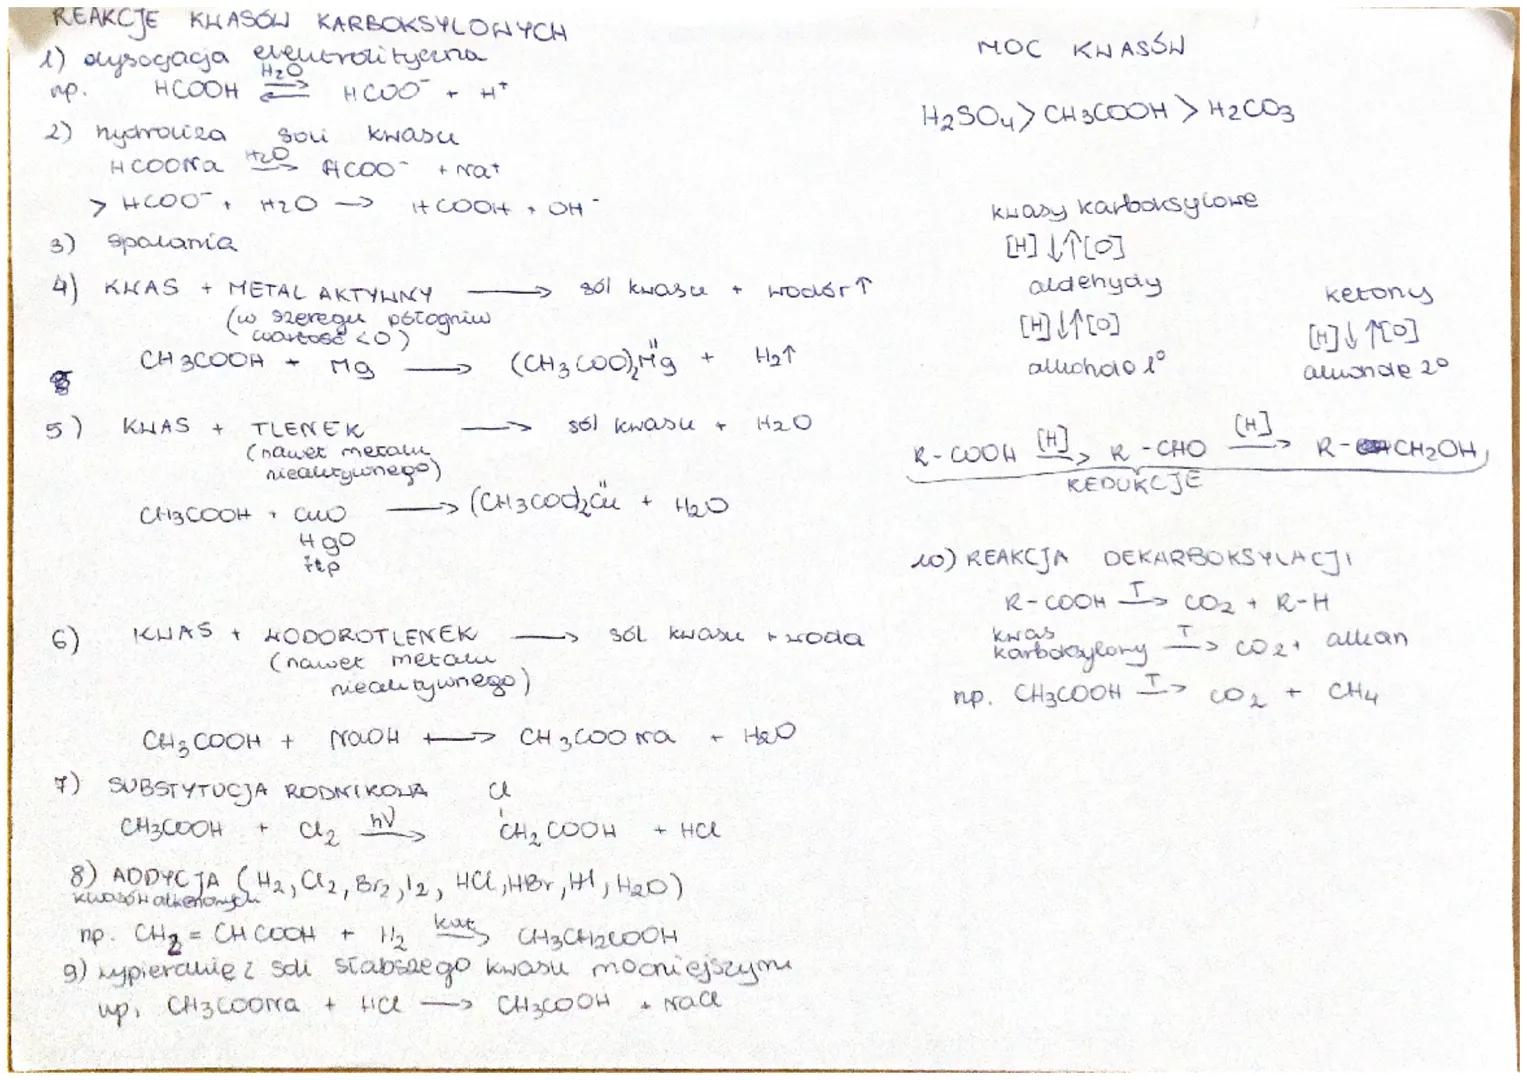 REAKCJE KWASÓW KARBOKSYLOWYCH
1) dysocjacja elektrolityczna
np. HCOOH ⇌ (H2O) HCOO⁻ + H⁺
2) hydroliza soli kwasu
HCOONa →(H2O) HCOO⁻ + Na⁺
> HCOO⁻ + H2O → HCOOH + OH⁻
3) spalania
4) KWAS + METAL AKTYWNY → sól kwasu + wodór↑
(w szeregu potogniw
wartość <0)
CH3COOH + Mg → (CH3COO)2Mg + H2↑
5) KWAS + TLENEK → sól kwasu + H2O
(nawet metalu
nieaktywnego)
CH3COOH + CuO → (CH3COO)2Cu + H2O
HgO
itp
6) KWAS + WODOROTLENEK → sól kwasu + woda
(nawet metalu
nieaktywnego)
CH3COOH + NaOH → CH3COONa + H2O
7) SUBSTYTUCJA RODNIKOWA
Cl
CH3COOH + Cl2 →(hν) CH2COOH + HCl
8) ADDYCJA (H2, Cl2, Br2, I2, HCl, HBr, HI, H2O)
kwasów alkenowych
np. CH2=CHCOOH + H2 →(kat) CH3CH2COOH
9) wypieranie z soli słabszego kwasu mocniejszym
np. CH3COONa + HCl → CH3COOH + NaCl
MOC KWASÓW
H2SO4 > CH3COOH > H2CO3
kwasy karboksylowe
[H]↓↑[O]
aldehydy
[H]↓↑[O]
alkohole 1°
ketony
[H]↓↑[O]
alkohole 2°
R-COOH →([H]) R-CHO →([H]) R-CH2OH
REDUKCJE
10) REAKCJA DEKARBOKSYLACJI
R-COOH →(T) CO2 + R-H
kwas
karboksylowy →(T) CO2 + alkan
np. CH3COOH →(T) CO2 + CH4